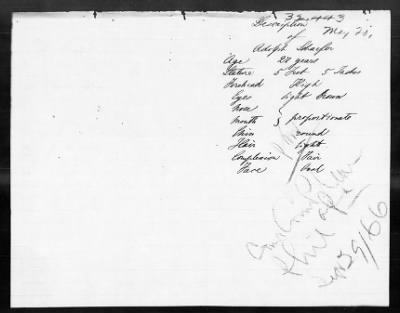 32443
Description
May 28,
of
Adolph Schaefer
Age 28 years
Stature 5 Feet 5 Inches
Forehead High
Eyes Light Brown
Nose
Mouth } proportionate
Chin round
Hair Light
Complexion Fair
Face Oval
Phila
29/66